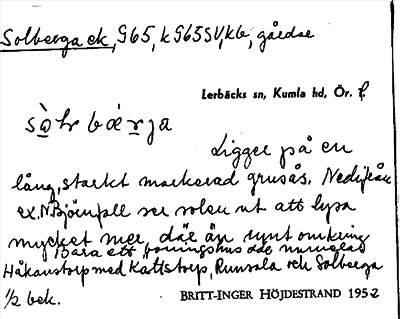 Solberga ek, G65, k G65SV, kb, gårdse
Lerbäcks sn, Kumla hd, Ör. f
sò̱lv bæṟja
Ligger på en
lång, starkt markerad grusås. Nedifrån
ex. N. Björnfall ser solen ut att lysa
mycket mer, där än runt omkring
Bara ett boningshus där numera
Håkanstorp med Kattstorp, Runsala och Solberga
1/2 bek.
BRITT-INGER HÖJDESTRAND 1952